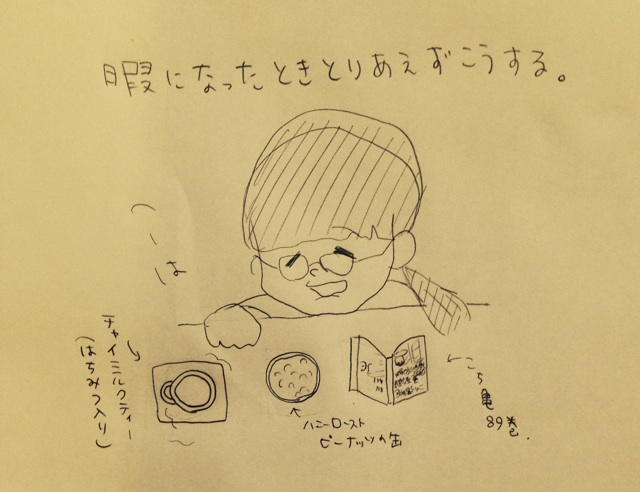 暇になったときとりあえずこうする。
へーは
チャイミルクティー
(はちみつ入り)
ハニーロースト
ピーナッツの缶
こち亀
89巻.